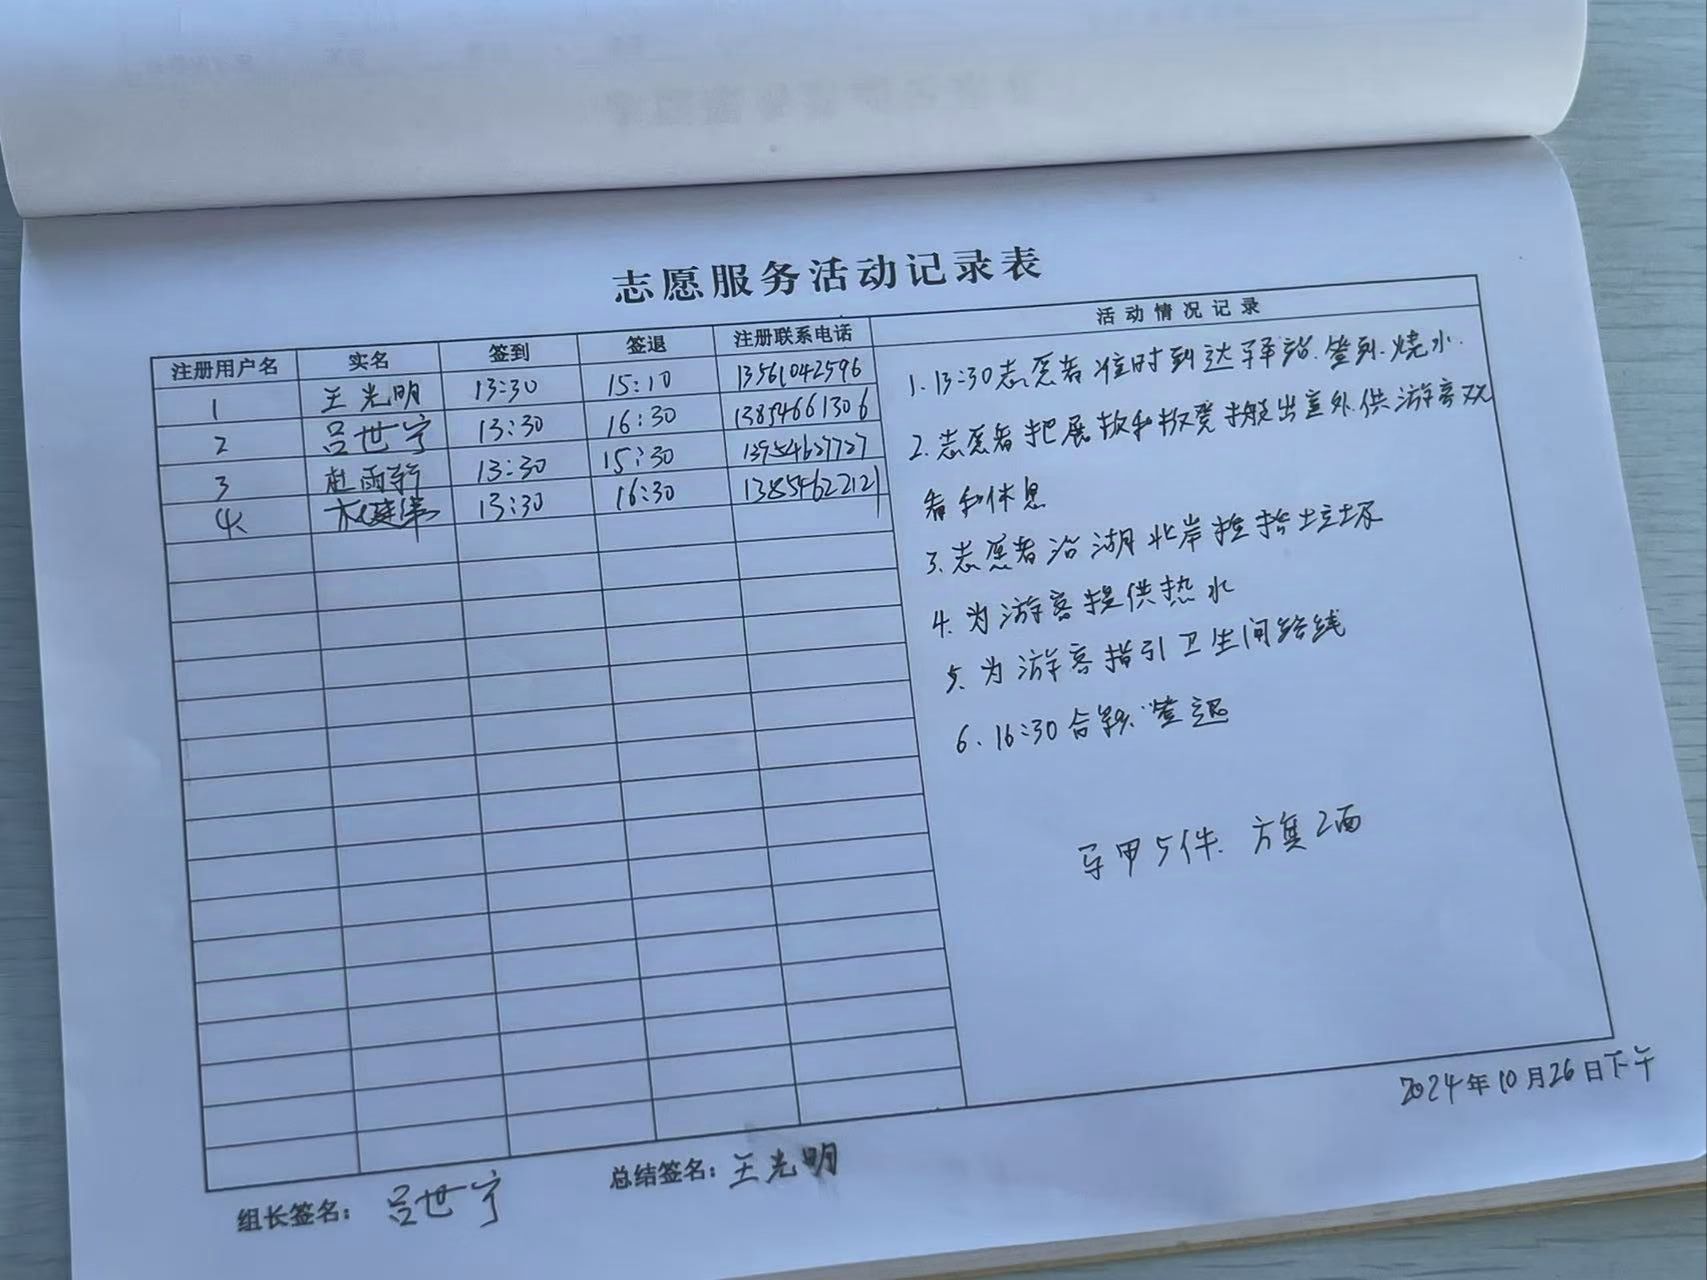 志愿服务活动记录表
注册用户名 实名 签到 签退 注册联系电话 活动情况记录
1 王光明 13:30 15:10 13561042596
2 吕世宁 13:30 16:30 13854661306
3 杜雨轩 13:30 15:30 13954627727
4 13:30 16:30 13854622121
1. 13:30志愿者准时到达驿站.签到.烧水.
2. 志愿者把展板和板凳搬出室外.供游客观
看和休息
3. 志愿者沿湖北岸捡拾垃圾
4. 为游客提供热水
5. 为游客指引卫生间路线
6. 16:30合影.签退
马甲5件. 方旗2面
2024年10月26日下午
组长签名: 吕世宁 总结签名: 王光明